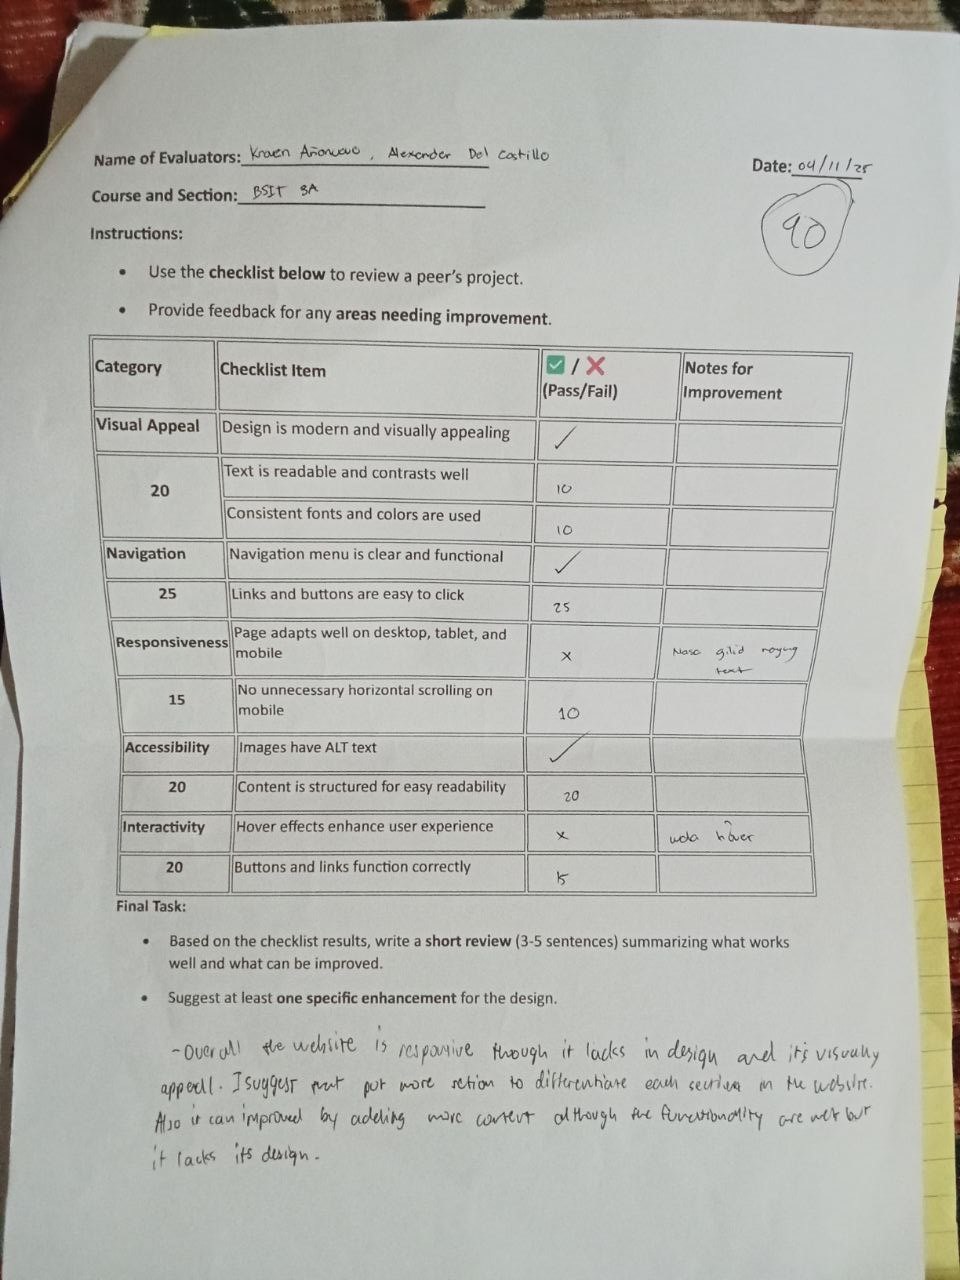 Name of Evaluators: Kraven Añonuevo, Alexander Del Castillo
Date: 04/11/25
Course and Section: BSIT 3A
90
Instructions:
• Use the checklist below to review a peer's project.
• Provide feedback for any areas needing improvement.
Category Checklist Item ✅ / ❌ (Pass/Fail) Notes for Improvement
Visual Appeal Design is modern and visually appealing ✓
20 Text is readable and contrasts well 10
Consistent fonts and colors are used 10
Navigation Navigation menu is clear and functional ✓
25 Links and buttons are easy to click 25
Responsiveness Page adapts well on desktop, tablet, and mobile x Nasa gilid noyung text
15 No unnecessary horizontal scrolling on mobile 10
Accessibility Images have ALT text ✓
20 Content is structured for easy readability 20
Interactivity Hover effects enhance user experience x wala hover
20 Buttons and links function correctly 15
Final Task:
• Based on the checklist results, write a short review (3-5 sentences) summarizing what works
well and what can be improved.
• Suggest at least one specific enhancement for the design.
- Overall the website is responsive though it lacks in design and it's visually
appeall. I suggest put more to differentiate each section in the website.
Also it can improved by adding more content although the functionality are met but
it lacks its design.